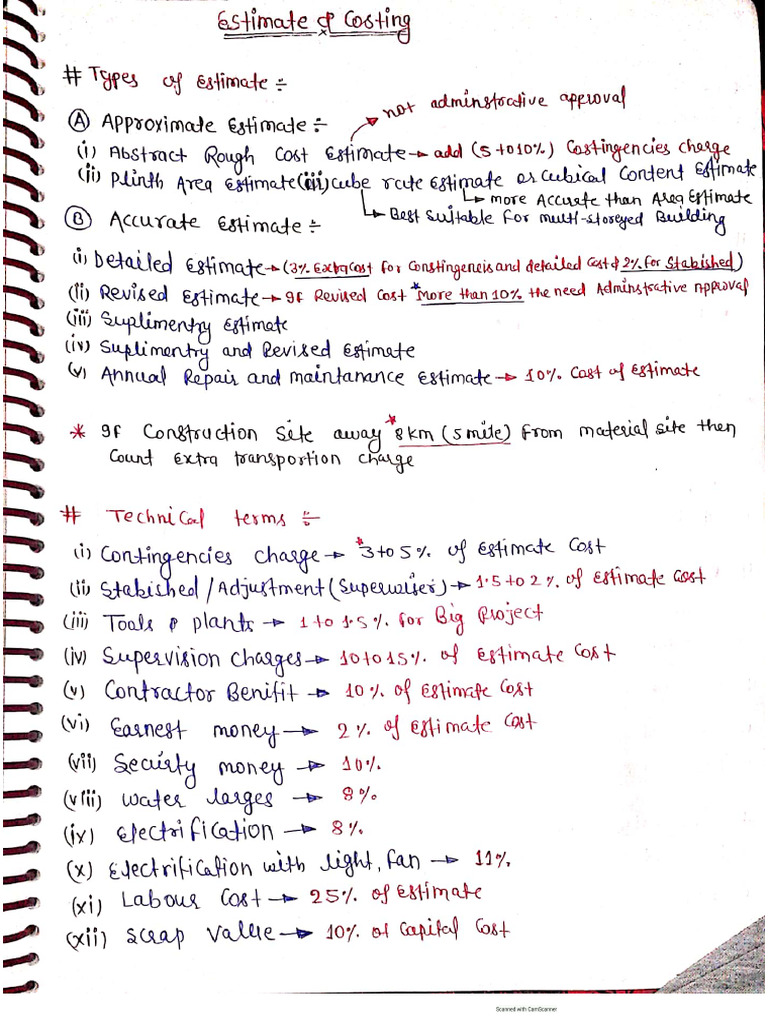 Estimate & Costing
# Types of Estimate ÷
not adminstrative approval
(A) Approximate Estimate ÷
(i) Abstract Rough Cost Estimate → add (5 to 10%) Costingencies charge
(ii) Plinth Area Estimate (iii) cube rate Estimate or Cubical Content Estimate
↳ more Accurate than Area Estimate
↳ Best suitable for multi-storeyed Building
(B) Accurate Estimate ÷
(i) Detailed Estimate → (3% Extra Cost for Constingeneis and detailed Cost & 2% for Stabished)
(ii) Revised Estimate → If Revised Cost *More than 10% the need Adminstrative Approval
(iii) Suplimentry Estimate
(iv) Suplimentry and Revised Estimate
(v) Annual Repair and maintanance Estimate → 10% Cost of Estimate
* If Construction Site away *8 km (5 mile) from material site then
Count Extra transportion Charge
# Technical terms ÷
(i) Contingencies Charge → *3 to 5% of Estimate Cost
(ii) Stabished / Adjustment (Superwiser) → 1.5 to 2% of Estimate Cost
(iii) Tools & plants → 1 to 1.5% for Big Project
(iv) Supervision Charges → 10 to 15% of Estimate Cost
(v) Contractor Benifit → 10% of Estimate Cost
(vi) Earnest money → 2% of Estimate Cost
(vii) Secuirty money → 10%
(viii) water larges → 8%
(ix) Electrification → 8%
(x) Electrification with light, fan → 11%
(xi) Labour Cost → 25% of Estimate
(xii) Scrap Value → 10% of Capital Cost
Scanned with CamScanner